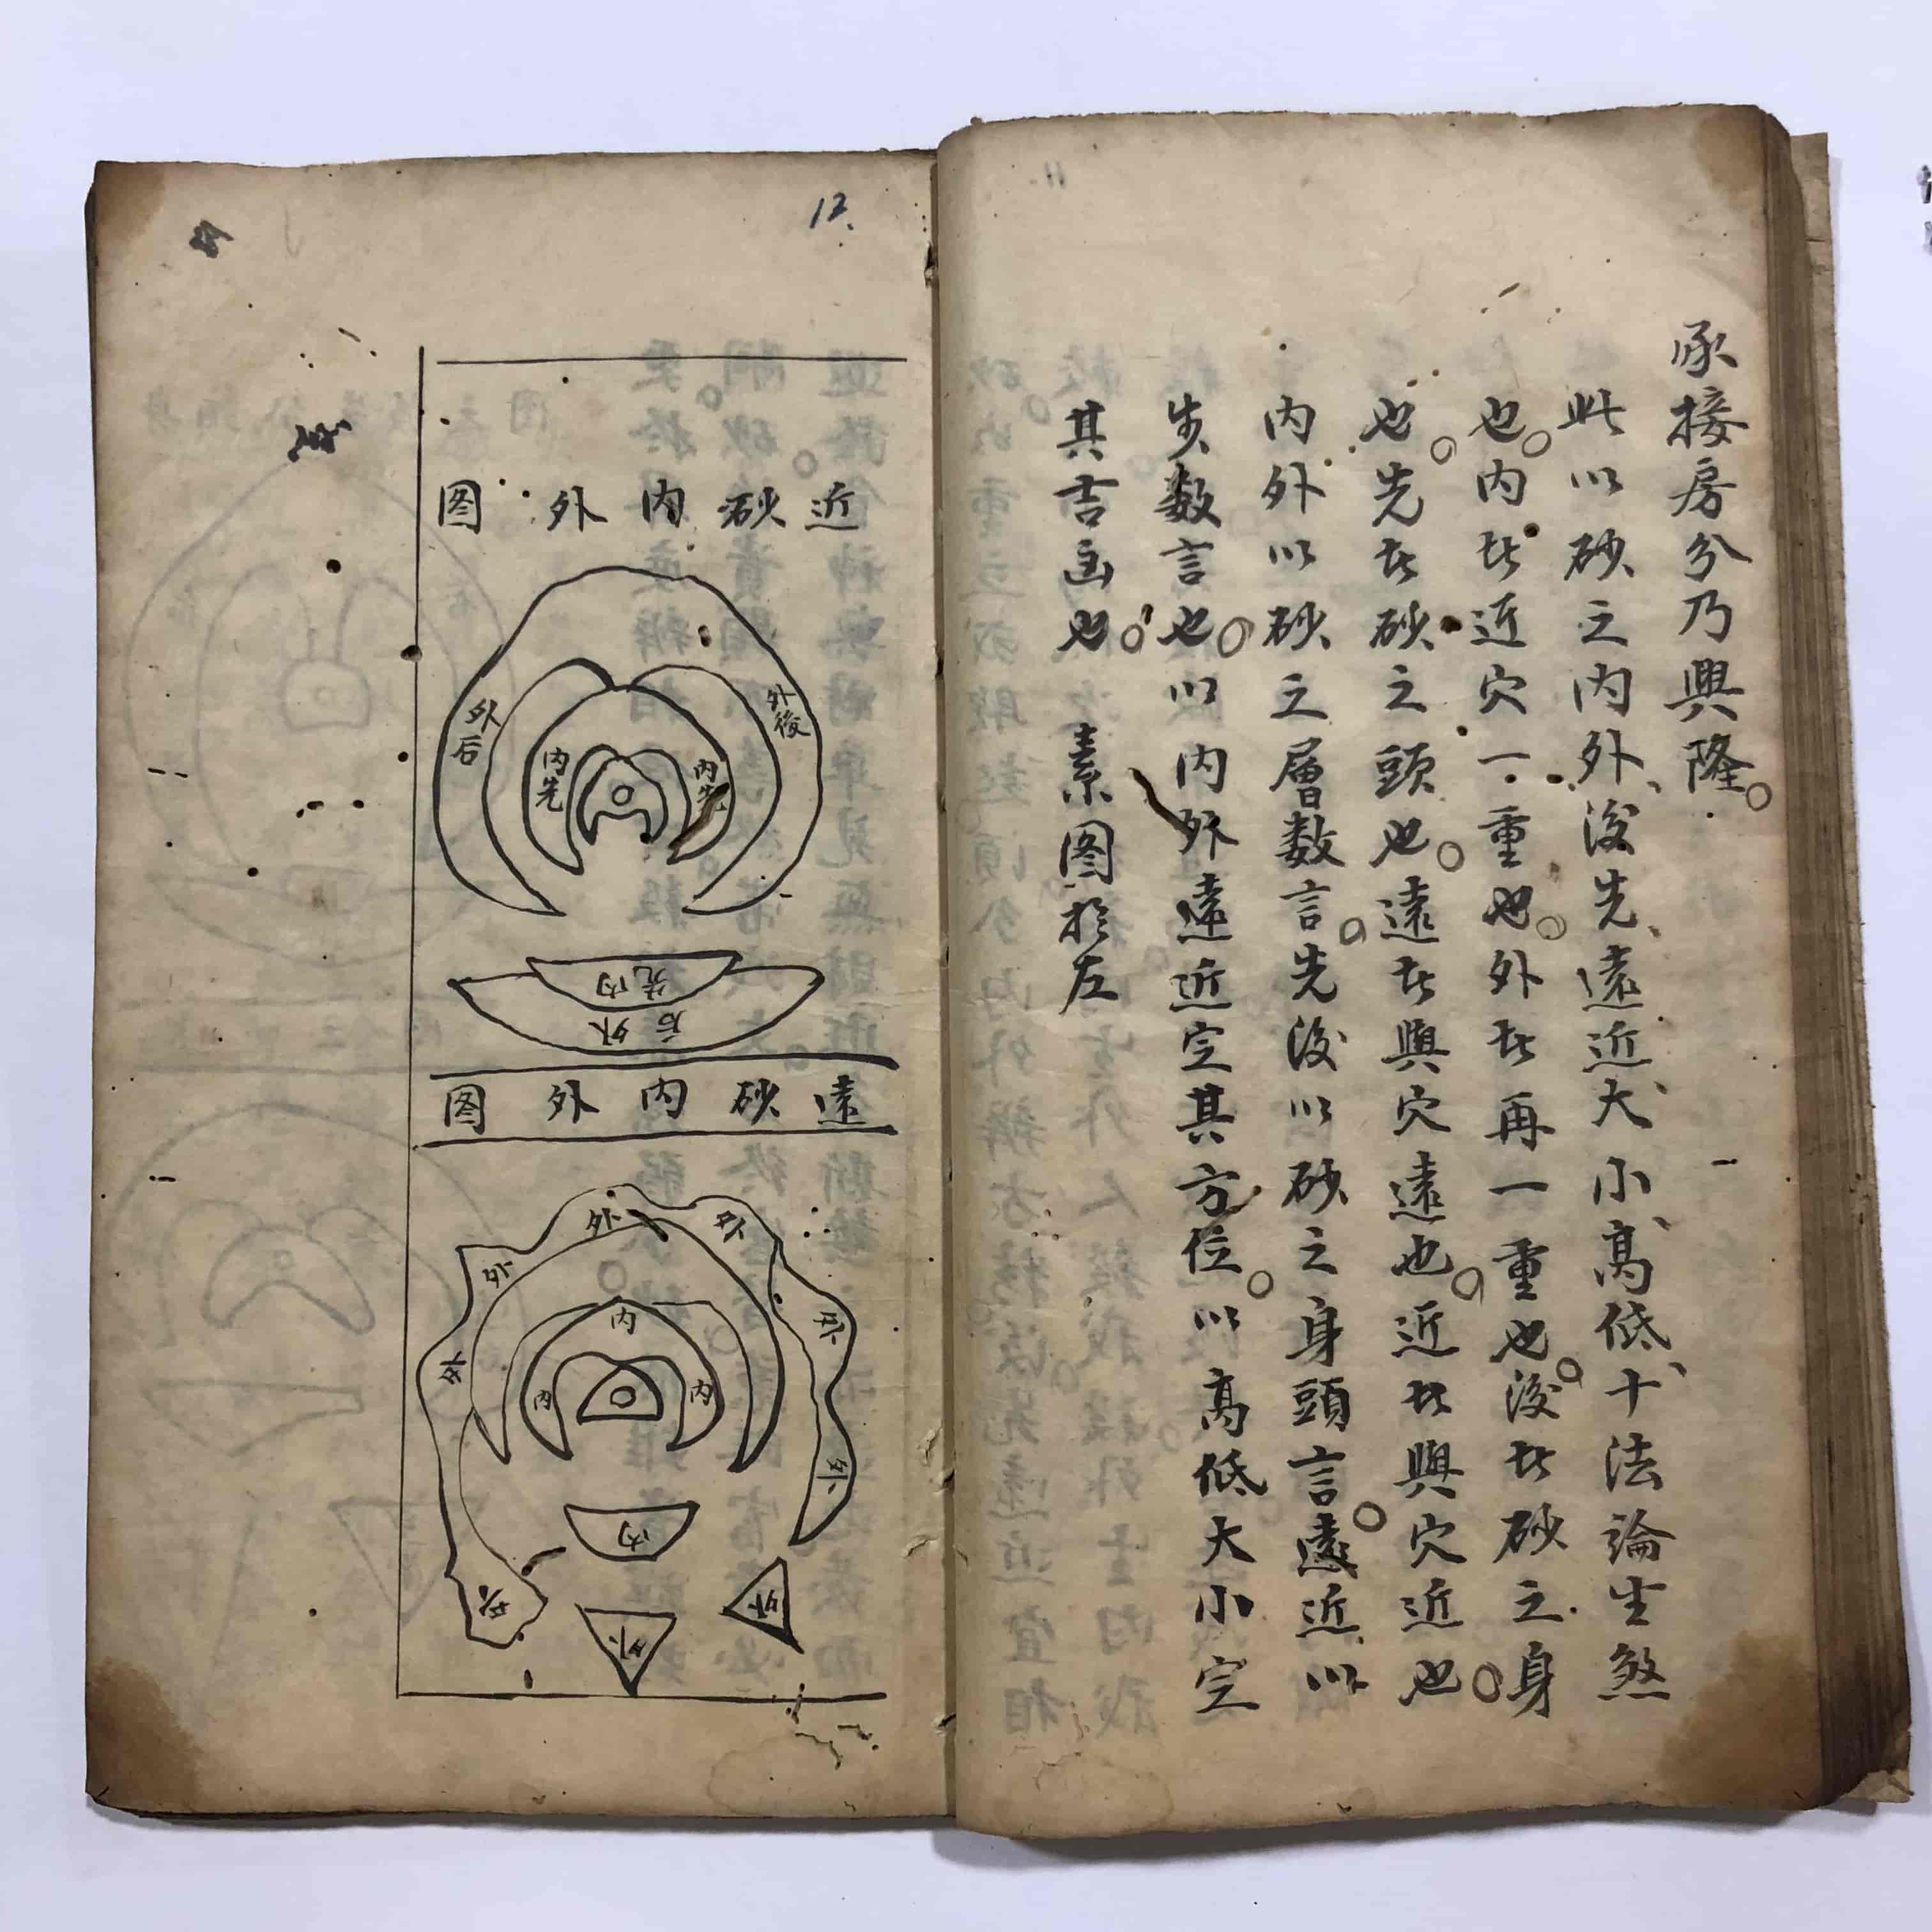 承接房分乃興隆。
此以砂之内外、後先、遠近、大小、高低、十法論生煞
也。内者近穴一重也。外者再一重也。後者砂之身
也。先者砂之頭也。遠者與穴遠也。近者與穴近也。
内外以砂之層数言。先後以砂之身頭言。遠近以
步数言也。以内外遠近定其方位。以高低大小定
其吉凶也。 素图於左
12.
近砂内外图
外後
外后
内先
内先
先内
后外
遠砂内外图
外
外
外
外
外
外
外
内
内
内
内
外
外
11.